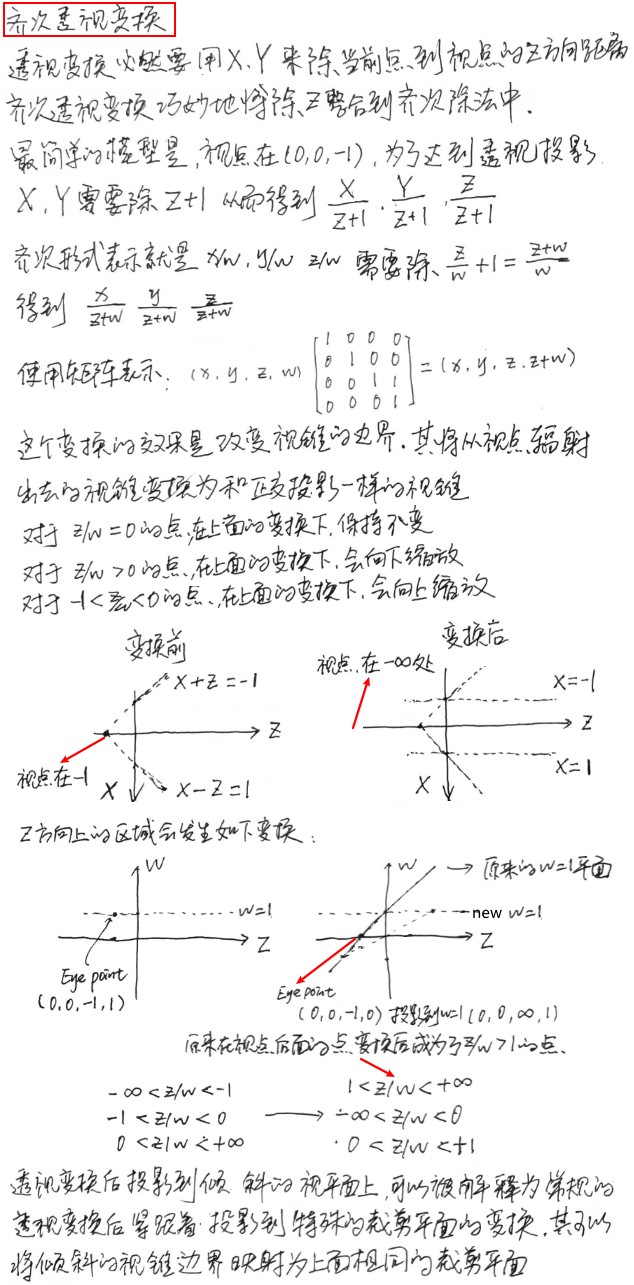 齐次透视变换
透视变换必然要用X、Y来除当前点到视点的Z方向距离
齐次透视变换巧妙地将除Z整合到齐次除法中.
最简单的模型是,视点在(0,0,-1),为了达到透视投影
X、Y需要除Z+1 从而得到 X/(Z+1) . Y/(Z+1) . Z/(Z+1)
齐次形式表示就是 x/w, y/w z/w 需要除 z/w + 1 = (z+w)/w
得到 x/(z+w) y/(z+w) z/(z+w)
使用矩阵表示: (x, y, z, w) [1 0 0 0
0 1 0 0
0 0 1 1
0 0 0 1] = (x, y, z, z+w)
这个变换的效果是改变视锥的边界. 其将从视点辐射
出去的视锥变换为和正交投影一样的视锥
对于 z/w = 0 的点,在上面的变换下,保持不变
对于 z/w > 0 的点,在上面的变换下,会向下缩放
对于 -1 < z/w < 0 的点,在上面的变换下,会向上缩放
变换前
X+Z=-1
Z
视点在-1
X
X-Z=1
变换后
视点在-∞处
X=-1
Z
X=1
X
Z方向上的区域会发生如下变换:
W
w=1
Z
Eye point
(0,0,-1,1)
W
原来的w=1平面
new w=1
Z
Eye point
(0,0,-1,0) 投影到w=1 (0,0,∞,1)
原来在视点后面的点变换后成为了z/w>1的点.
-∞ < z/w < -1
-1 < z/w < 0
0 < z/w < +∞
1 < z/w < +∞
-∞ < z/w < 0
0 < z/w < +1
透视变换后投影到倾斜的视平面上,可以被解释为常规的
透视变换后紧跟着投影到特殊的裁剪平面的变换.其可以
将倾斜的视锥边界映射为上面相同的裁剪平面